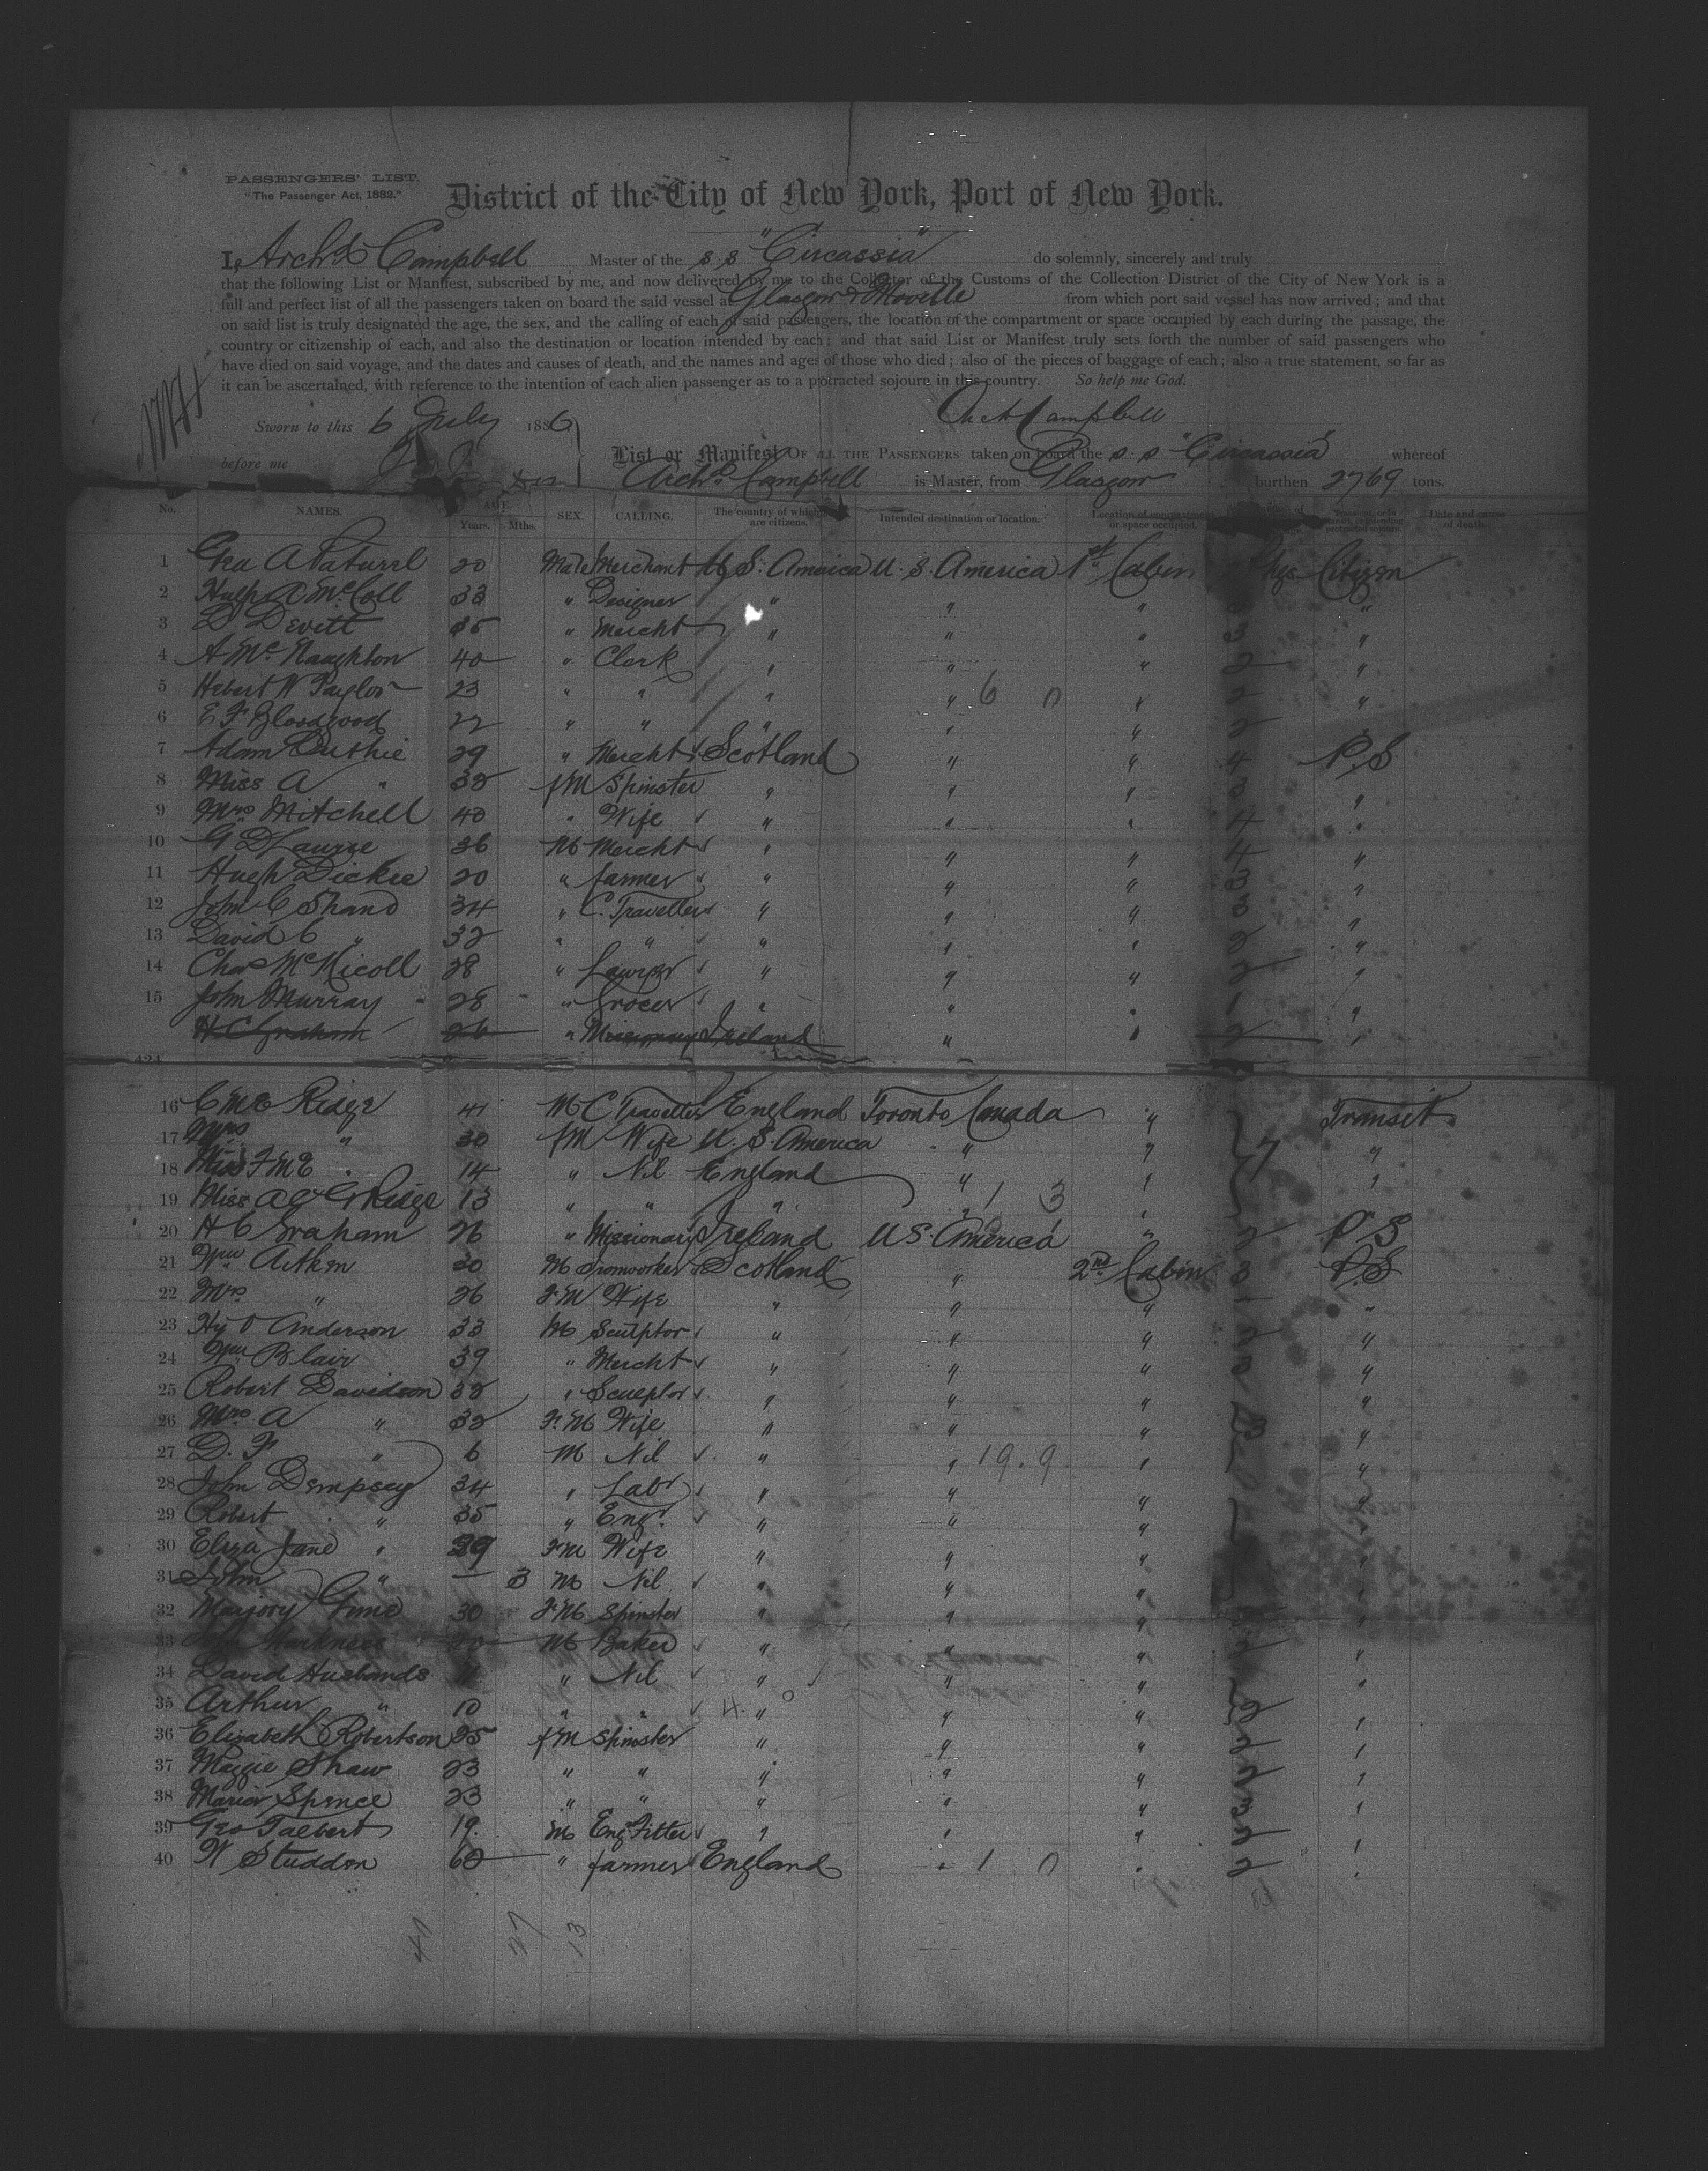 PASSENGERS' LIST.
"The Passenger Act, 1882."
District of the City of New York, Port of New York.
I, Archd Campbell Master of the s.s "Circassia" do solemnly, sincerely and truly
that the following List or Manifest, subscribed by me, and now delivered by me to the Collector of the Customs of the Collection District of the City of New York is a
full and perfect list of all the passengers taken on board the said vessel at Glasgow & Moville from which port said vessel has now arrived; and that
on said list is truly designated the age, the sex, and the calling of each of said passengers, the location of the compartment or space occupied by each during the passage, the
country or citizenship of each, and also the destination or location intended by each; and that said List or Manifest truly sets forth the number of said passengers who
have died on said voyage, and the dates and causes of death, and the names and ages of those who died; also of the pieces of baggage of each; also a true statement, so far as
it can be ascertained, with reference to the intention of each alien passenger as to a protracted sojourn in this country. So help me God.
Sworn to this 6 July 1886 Arch Campbell
before me
List or Manifest OF ALL THE PASSENGERS taken on board the s.s "Circassia" whereof
Archd. Campbell is Master, from Glasgow burthen 2769 tons.
No. NAMES. AGE. Years. Mths. SEX. CALLING. The country of which they are citizens. Intended destination or location. Location of compartment or space occupied. Date and cause of death.
1 Geo A 20 Male Merchant U.S. America U.S. America 1st Cabin Citizen
2 Hugh A McColl 33 " Designer " " " "
3 D Devitt 35 " Mercht " " " 3 "
4 A McNaughton 40 " Clerk " " " 2 "
5 Hebert W Taylor 23 " " " " 6 0 " 2 "
6 E F Bloodgood 22 " " " " " 2
7 Adam Duthie 29 " Mercht Scotland " " 4 P.S
8 Miss A " 32 fM Spinster " " " 3 "
9 Mrs Mitchell 40 " Wife " " " 4 "
10 G D Lawrie 36 M Mercht " " " 4 "
11 Hugh Dickie 20 " farmer " " " 3 "
12 John C Shand 34 " C. Traveller " " " 3 "
13 David C " 32 " " " " " 2 "
14 Chas McNicoll 28 " Lawyer " " " 2 "
15 John Murray 28 " Grocer " " " 1 "
H C Graham 26 " Missionary Ireland " " 2 "
16 C McE Ridge 41 M C Traveller England Toronto Canada " Transit
17 Mrs " 30 fM Wife U.S. America " " 7 "
18 Miss F McE " 14 " Nil England " " "
19 Miss A & G Ridge 13 " " " " 1 3 "
20 H C Graham 26 " Missionary Ireland U S. America " 2 P S
21 Wm Aitken 30 M Ironworker Scotland " 2nd Cabin 3 P.S
22 Mrs " 26 F.M Wife " " " "
23 Hy O Anderson 33 M Sculptor " " " 2 "
24 Wm Blair 39 " Mercht " " " 3 "
25 Robert Davidson 32 " Sculptor " " " "
26 Mrs A " 32 F.M Wife " " " "
27 D. F " 6 M Nil " " 19. 9 " "
28 John Dempsey 34 " Labr " " " "
29 Robert " 35 " Engr. " " " "
30 Eliza Jane " 29 F.M Wife " " " "
31 John " 3 M Nil " " " "
32 Marjory 30 F.M Spinster " " "
33 John Harkness 20 M Baker " " " 2
34 David Husbands 11 " Nil " " " "
35 Arthur " 10 " " 4. 0 " " " 2 "
36 Elizabeth Robertson 25 fM Spinster " " " 2 "
37 Maggie Shaw 23 " " " " " 2 "
38 Marion Spence 23 " " " " " 3 "
39 Geo Talbert 19. M Eng. Fitter " " " 2 "
40 W Studdon 60 " farmer England " 1 0 " 2 "
40 27 13